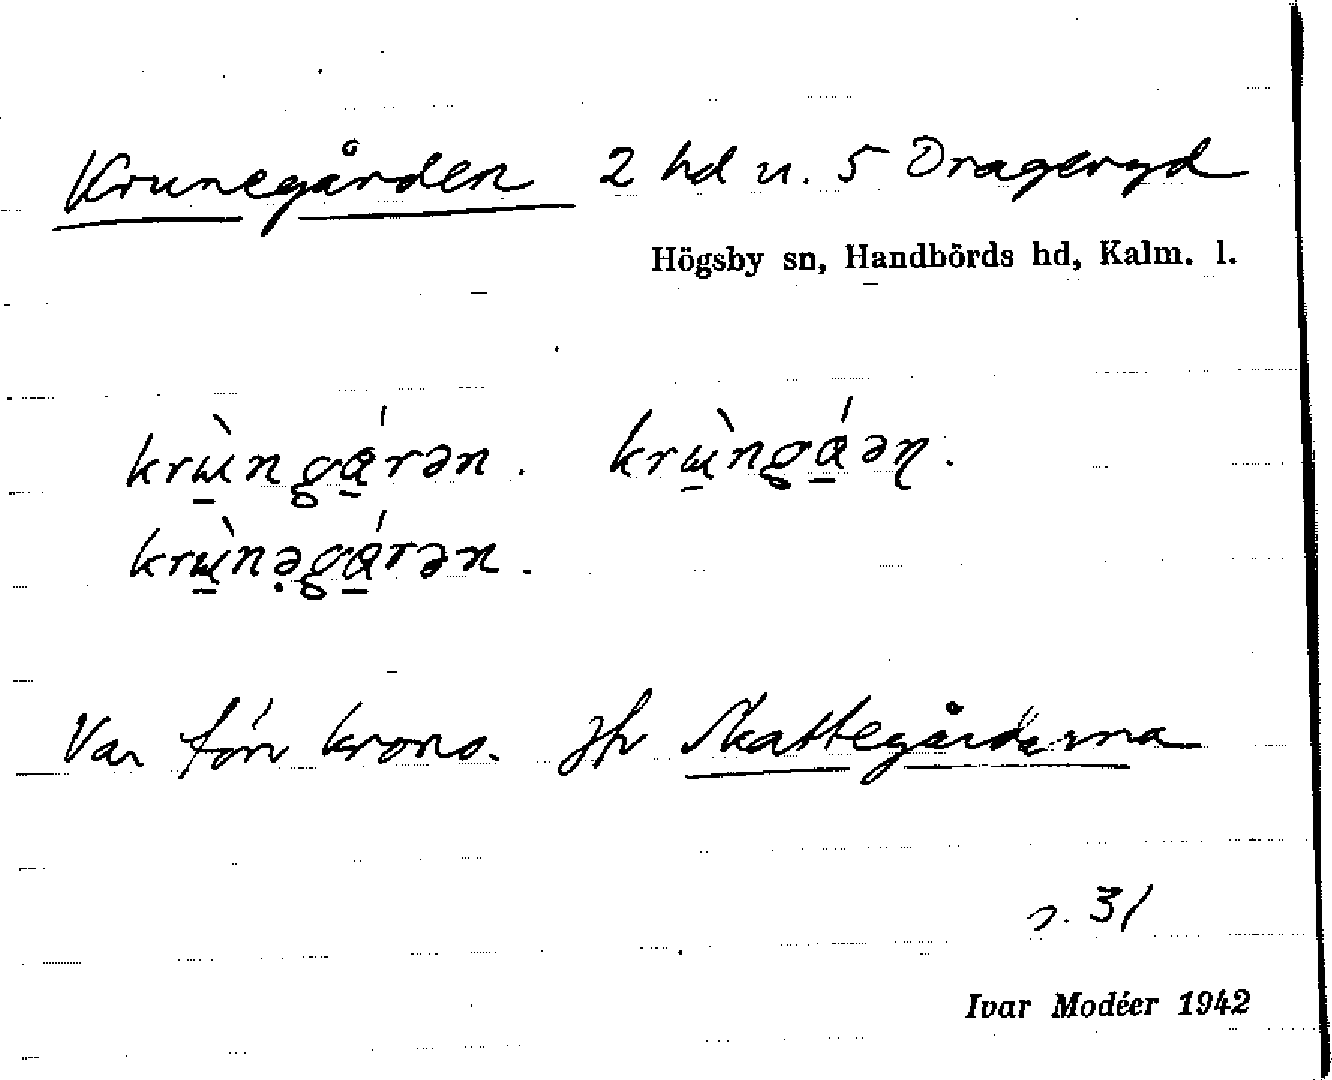 Krunegården 2 hd u. 5 Drageryd
Högsby sn, Handbörds hd, Kalm. l.
krɯ̱̀ngɑ̱́rən. krɯ̱̀ngɑ̱́əɳ.
krɯ̱̀nə̣gɑ̱́rən.
Var förr krono. Jfr Skattegårdarna
s. 31
Ivar Modéer 1942